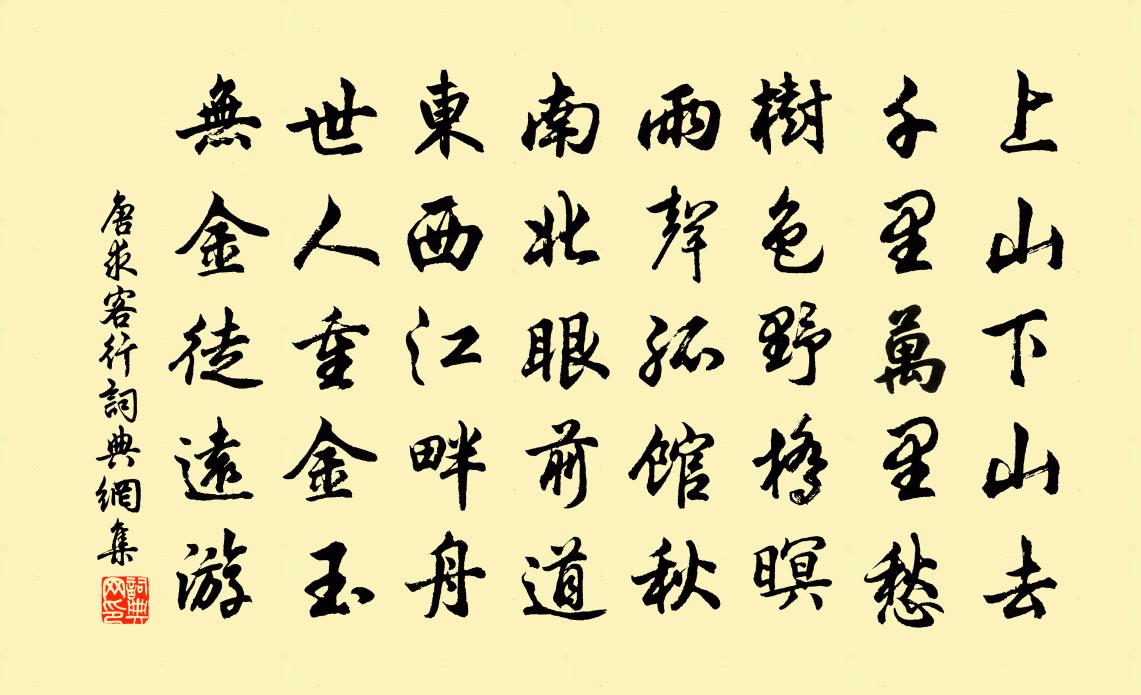 上山下山去
千里萬里愁
樹色野橋暝
雨聲孤館秋
南北眼前道
東西江畔舟
世人重金玉
無金徒遠游
唐求客行詞典網集
詞典网印